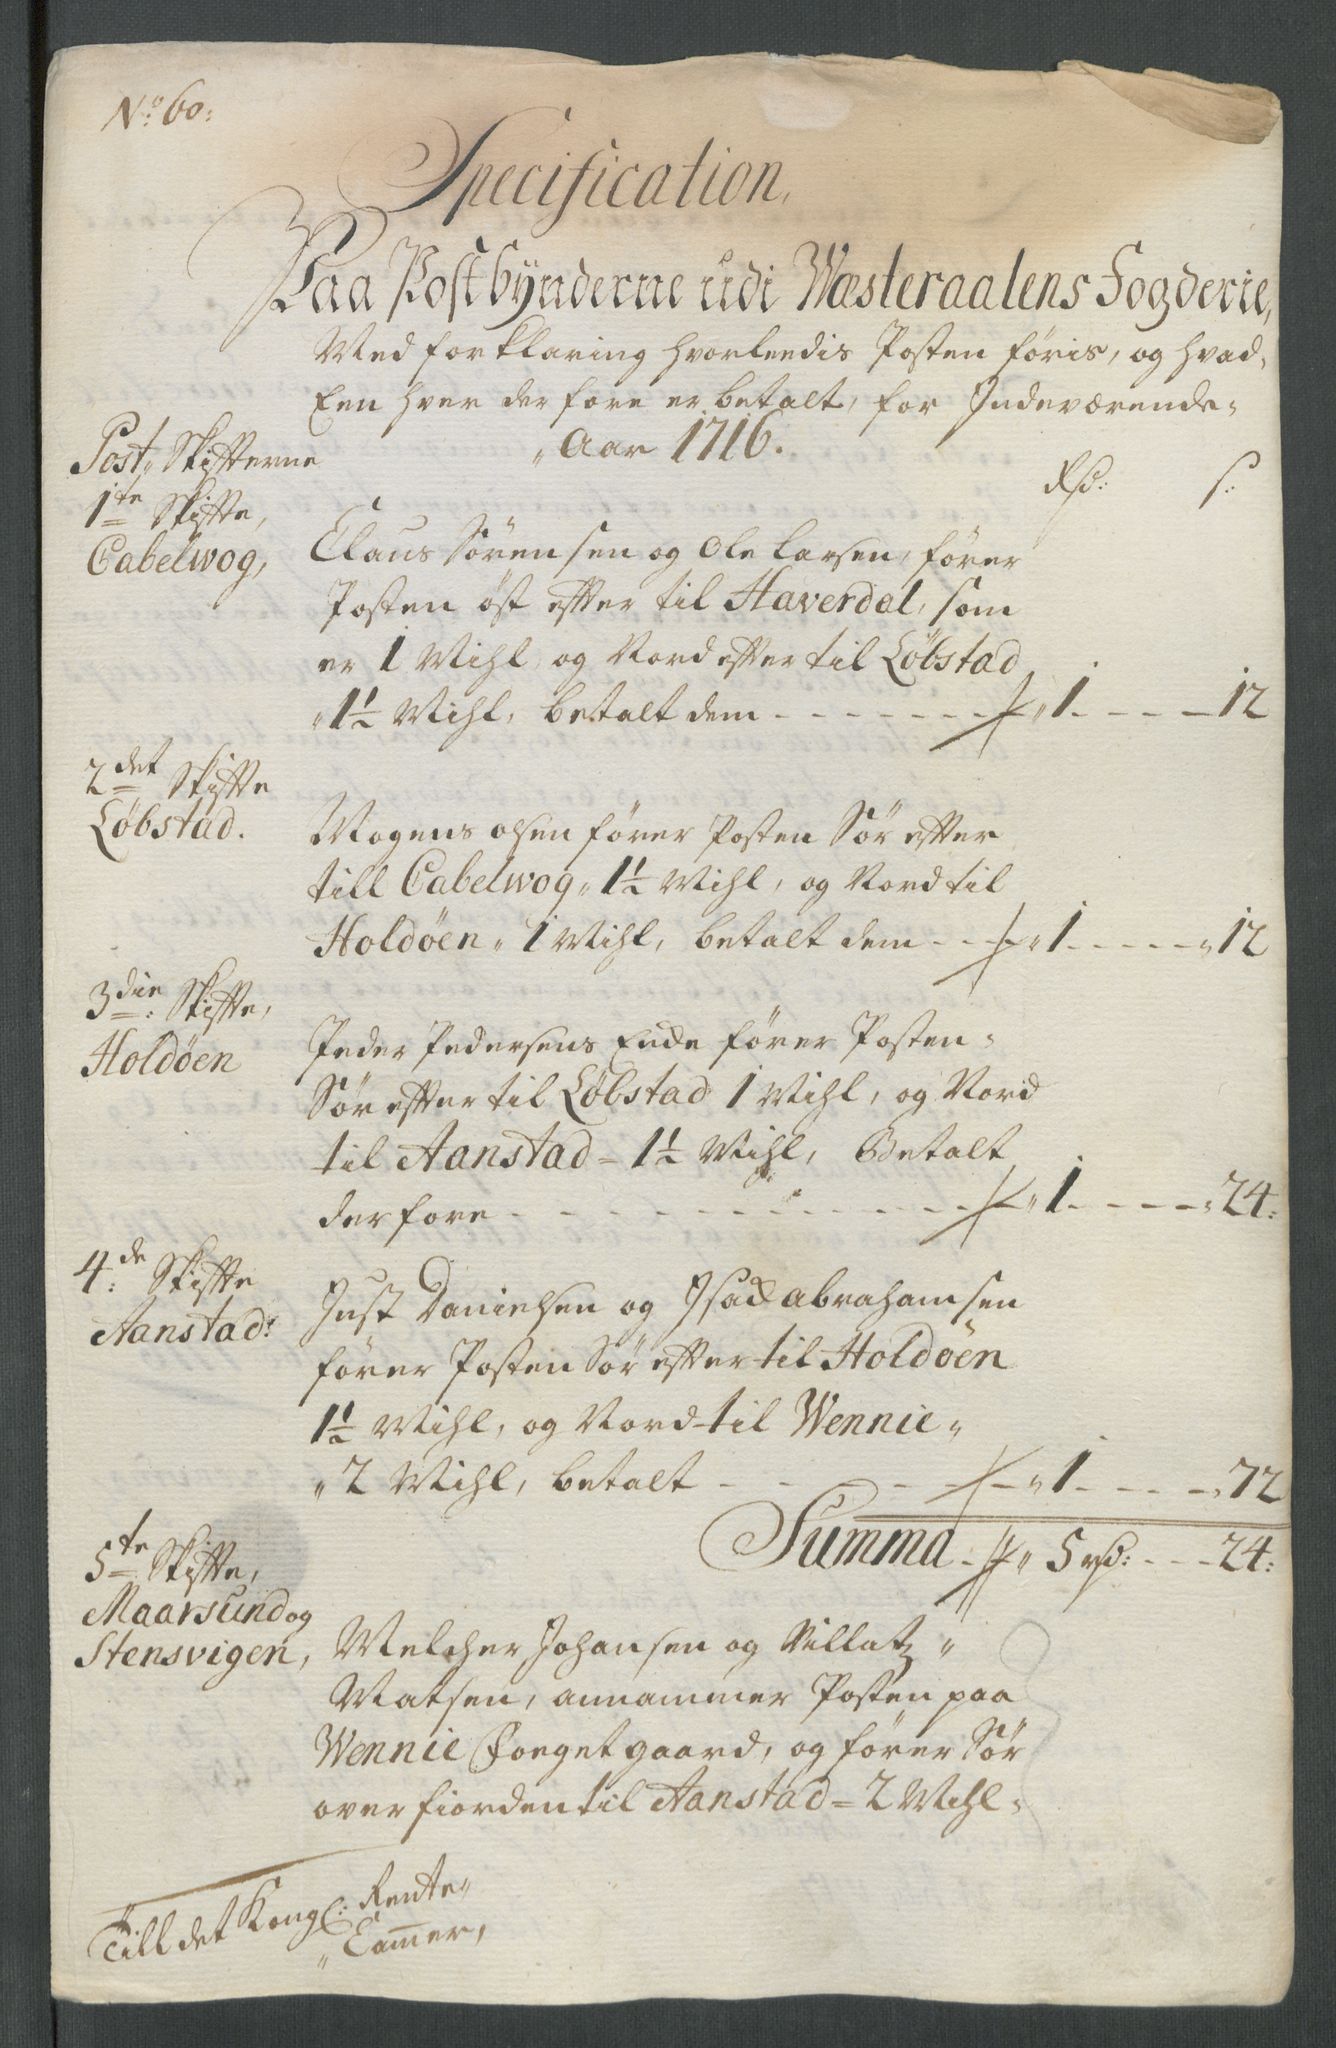 No: 60:
Specification,
Paa Postbynderne udi Wæsteraalens Fogderie,
Med forklaring hvorleedis Posten føris, og hvad
Een hver derfore er betalt, for Indeværende
Aar 1716.
Post Skifterne
Rd: s:
1te Skifte,
Cabelwog,
Claus Sørensen og Ole Larsen, fører
Posten øst efter til Haverdal, som
er 1 Mihl og Nord efter til Løbstad
1½ Mihl, betalt dem - - - 1 - - - 12
2det Skifte
Løbstad.
Mogens olsen fører Posten Sør efter
till Cabelwog 1½ Mihl, og Nord til
Holdøen 1 Mihl, betalt dem - - - 1 - - - 12
3die: Skifte,
Holdøen
Peder Pedersens Enche fører Posten
Sør efter til Løbstad 1 Mihl, og Nord
til Aanstad = 1½ Mihl, Betalt
derfore - - - 1 - - - 24:
4de: Skifte
Aanstad:
Just Danielsen og Isach abrahamsen
fører Posten Sør efter til Holdøen
1½ Mihl, og Nord til Wennie
2 Mihl, betalt - - - 1 - - - 72
Summa - 5 rd: - - - 24:
5te Skifte,
Maarsund og
Stensvigen,
Melcher Johansen og Villatz
Matsen, annammer Posten paa
Wennie Foeget gaard, og fører Sør
over fiorden til Aanstad = 2 Mihl
Till det Kongl: Rente
Cammer,